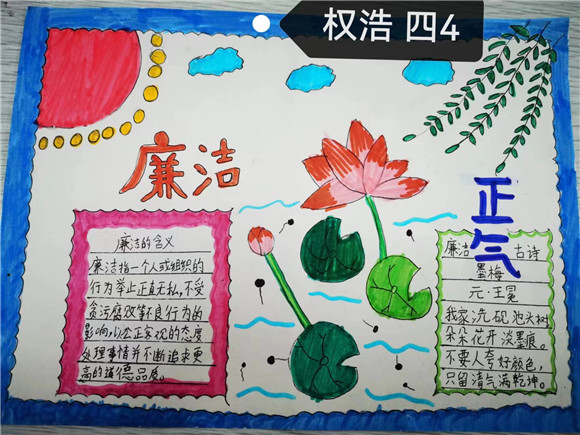 权浩 四4
廉洁
正气
廉洁的含义
廉洁指一个人或组织的
行为举止正直无私,不受
贪污腐败等不良行为的
影响,以公正客观的态度
处理事情并不断追求更
高的道德品质。
廉洁 古诗
墨梅
元·王冕
我家洗砚池头树
朵朵花开淡墨痕。
不要人夸好颜色,
只留清气满乾坤。